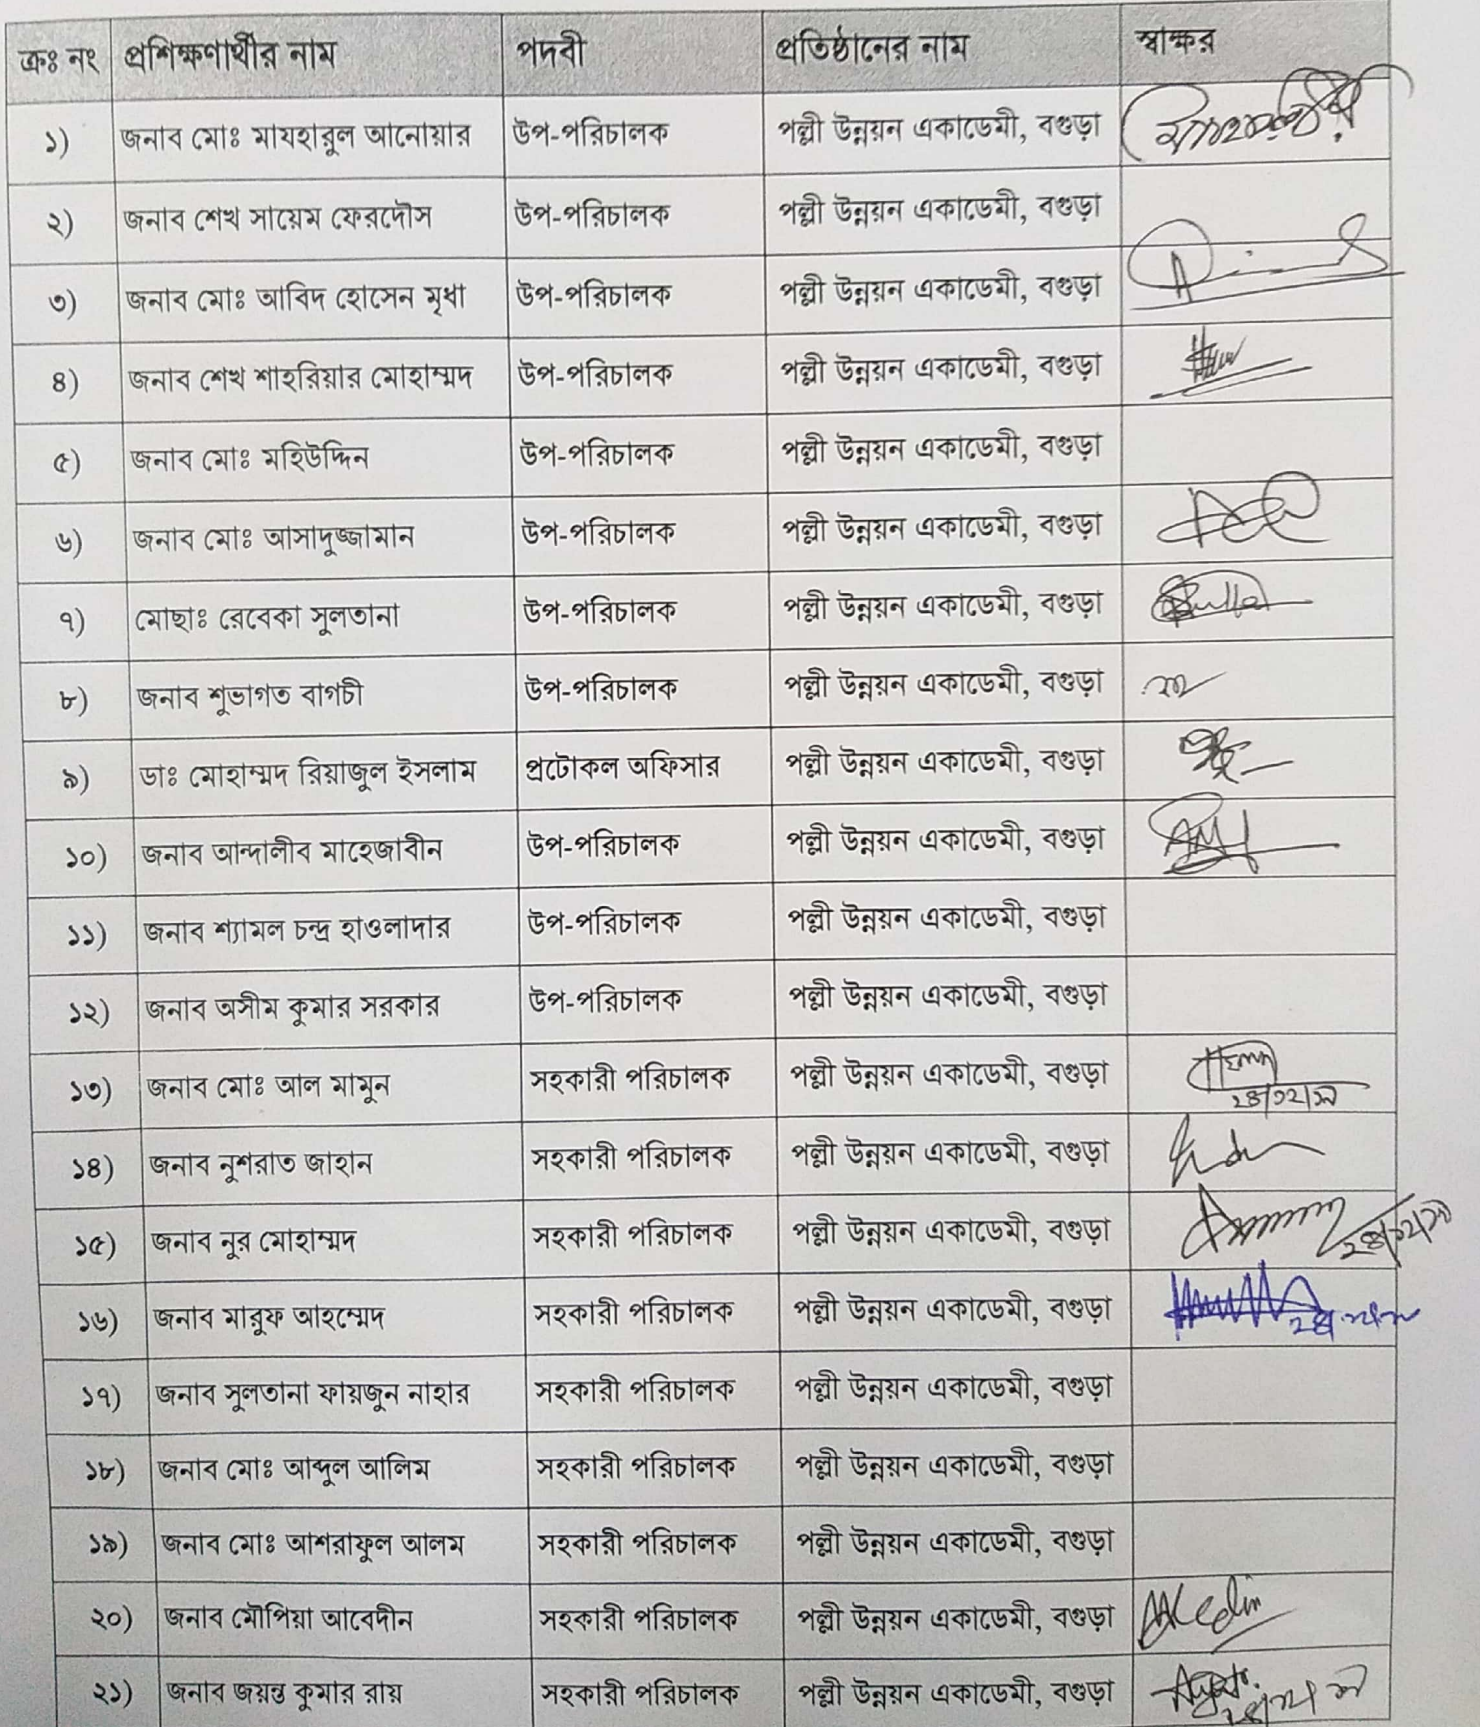 ক্রঃ নং প্রশিক্ষণার্থীর নাম পদবী প্রতিষ্ঠানের নাম স্বাক্ষর
১) জনাব মোঃ মাযহারুল আনোয়ার উপ-পরিচালক পল্লী উন্নয়ন একাডেমী, বগুড়া
২) জনাব শেখ সায়েম ফেরদৌস উপ-পরিচালক পল্লী উন্নয়ন একাডেমী, বগুড়া
৩) জনাব মোঃ আবিদ হোসেন মৃধা উপ-পরিচালক পল্লী উন্নয়ন একাডেমী, বগুড়া
৪) জনাব শেখ শাহরিয়ার মোহাম্মদ উপ-পরিচালক পল্লী উন্নয়ন একাডেমী, বগুড়া
৫) জনাব মোঃ মহিউদ্দিন উপ-পরিচালক পল্লী উন্নয়ন একাডেমী, বগুড়া
৬) জনাব মোঃ আসাদুজ্জামান উপ-পরিচালক পল্লী উন্নয়ন একাডেমী, বগুড়া
৭) মোছাঃ রেবেকা সুলতানা উপ-পরিচালক পল্লী উন্নয়ন একাডেমী, বগুড়া
৮) জনাব শুভাগত বাগচী উপ-পরিচালক পল্লী উন্নয়ন একাডেমী, বগুড়া
৯) ডাঃ মোহাম্মদ রিয়াজুল ইসলাম প্রটোকল অফিসার পল্লী উন্নয়ন একাডেমী, বগুড়া
১০) জনাব আন্দালীব মাহেজাবীন উপ-পরিচালক পল্লী উন্নয়ন একাডেমী, বগুড়া
১১) জনাব শ্যামল চন্দ্র হাওলাদার উপ-পরিচালক পল্লী উন্নয়ন একাডেমী, বগুড়া
১২) জনাব অসীম কুমার সরকার উপ-পরিচালক পল্লী উন্নয়ন একাডেমী, বগুড়া
১৩) জনাব মোঃ আল মামুন সহকারী পরিচালক পল্লী উন্নয়ন একাডেমী, বগুড়া
১৪) জনাব নুশরাত জাহান সহকারী পরিচালক পল্লী উন্নয়ন একাডেমী, বগুড়া
১৫) জনাব নুর মোহাম্মদ সহকারী পরিচালক পল্লী উন্নয়ন একাডেমী, বগুড়া
১৬) জনাব মারুফ আহম্মেদ সহকারী পরিচালক পল্লী উন্নয়ন একাডেমী, বগুড়া
১৭) জনাব সুলতানা ফায়জুন নাহার সহকারী পরিচালক পল্লী উন্নয়ন একাডেমী, বগুড়া
১৮) জনাব মোঃ আব্দুল আলিম সহকারী পরিচালক পল্লী উন্নয়ন একাডেমী, বগুড়া
১৯) জনাব মোঃ আশরাফুল আলম সহকারী পরিচালক পল্লী উন্নয়ন একাডেমী, বগুড়া
২০) জনাব মৌপিয়া আবেদীন সহকারী পরিচালক পল্লী উন্নয়ন একাডেমী, বগুড়া
২১) জনাব জয়ন্ত কুমার রায় সহকারী পরিচালক পল্লী উন্নয়ন একাডেমী, বগুড়া